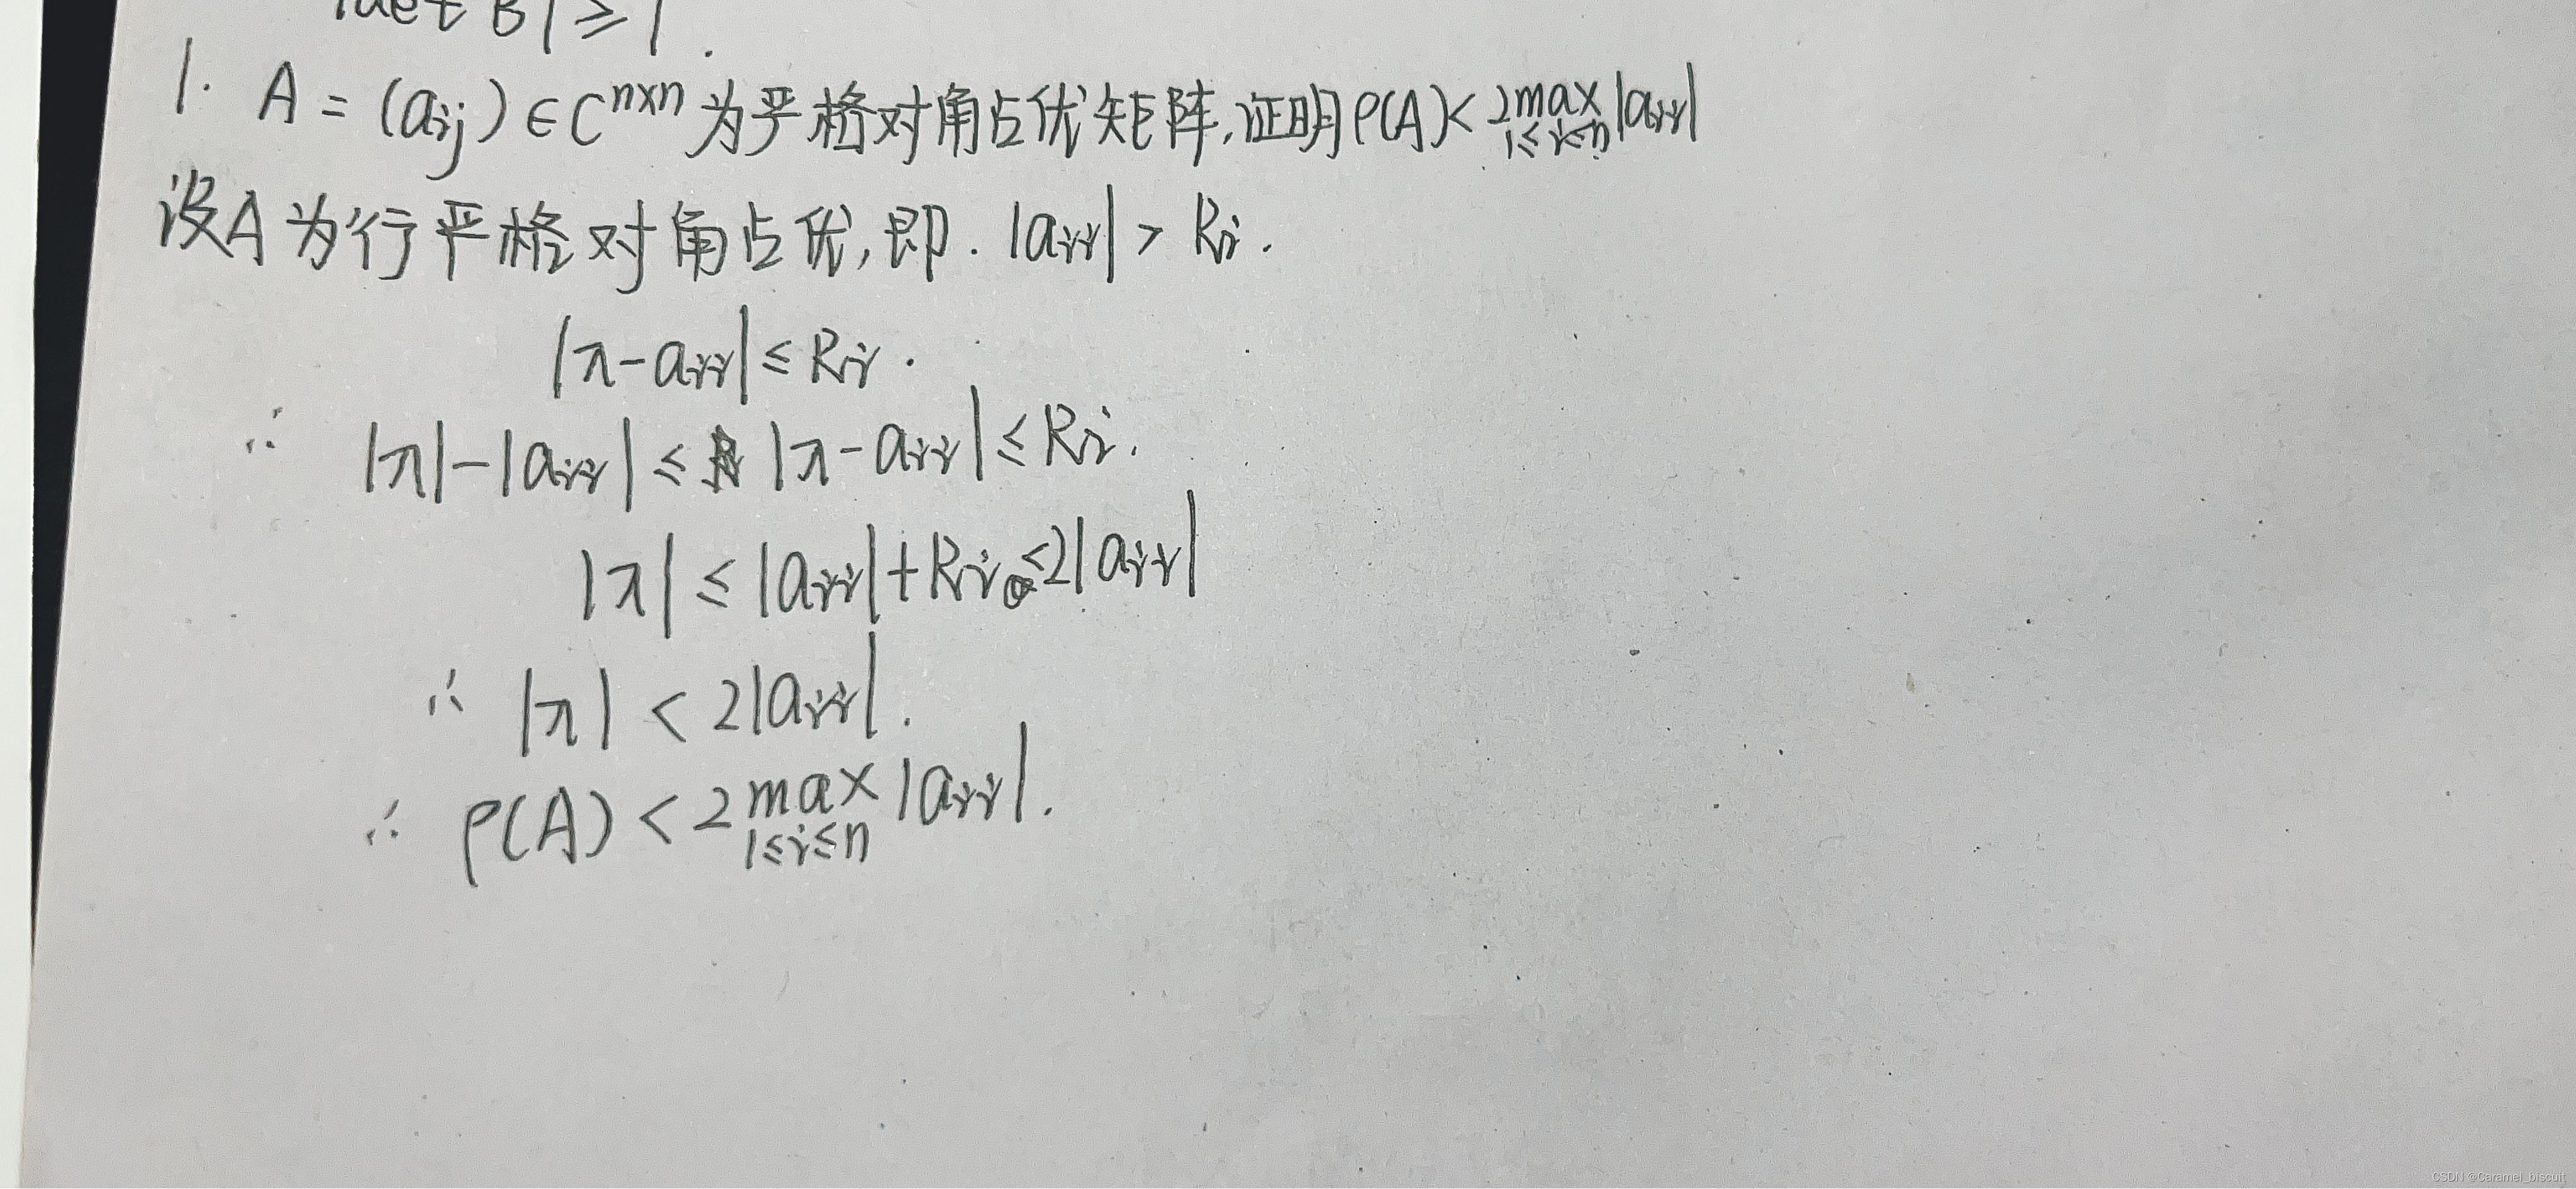 |det B| ≥ 1.
1. A = (aij) ∈ C^{n×n} 为严格对角占优矩阵,证明ρ(A) < 2 max_{1≤i≤n} |aii|
设A为行严格对角占优,即. |aii| > Ri.
|λ - aii| ≤ Ri.
∴ |λ| - |aii| ≤ |λ - aii| ≤ Ri.
|λ| ≤ |aii| + Ri < 2|aii|
∴ |λ| < 2|aii|.
∴ ρ(A) < 2 max_{1≤i≤n} |aii|.
CSDN @Caramel_biscuit